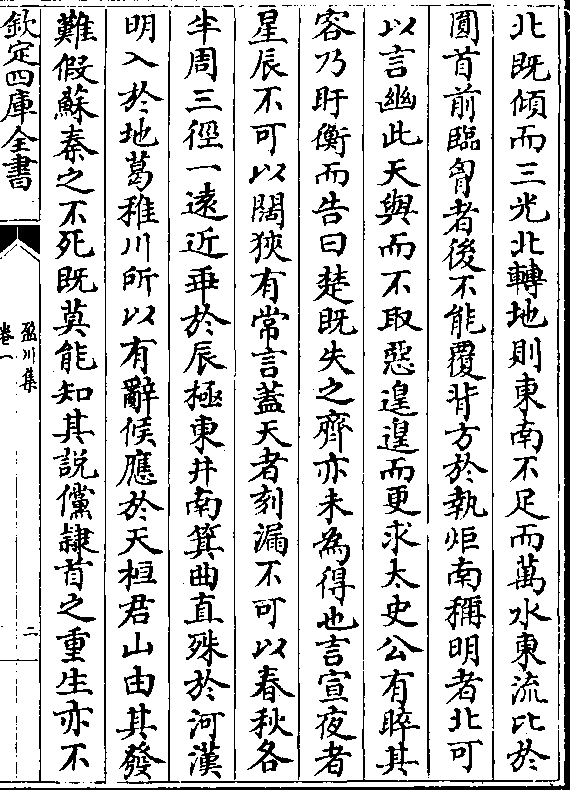 北既傾而三光北轉地則東南不足而萬水東流比於
圓首前臨胷者後不能覆背方於執炬南稱明者北可
以言幽此天與而不取惡遑遑而更求太史公有睟其
容乃盱衡而告曰楚既失之齊亦未為得也言宣夜者
星辰不可以闊狹有常言蓋天者刻漏不可以春秋各
半周三徑一逺近乖於辰極東井南箕曲直殊於河漢
明入於地葛稚川所以有辭候應於天桓君山由其發
難假蘇秦之不死既莫能知其説儻隷首之重生亦不
欽定四庫全書
盈川集
卷一
二